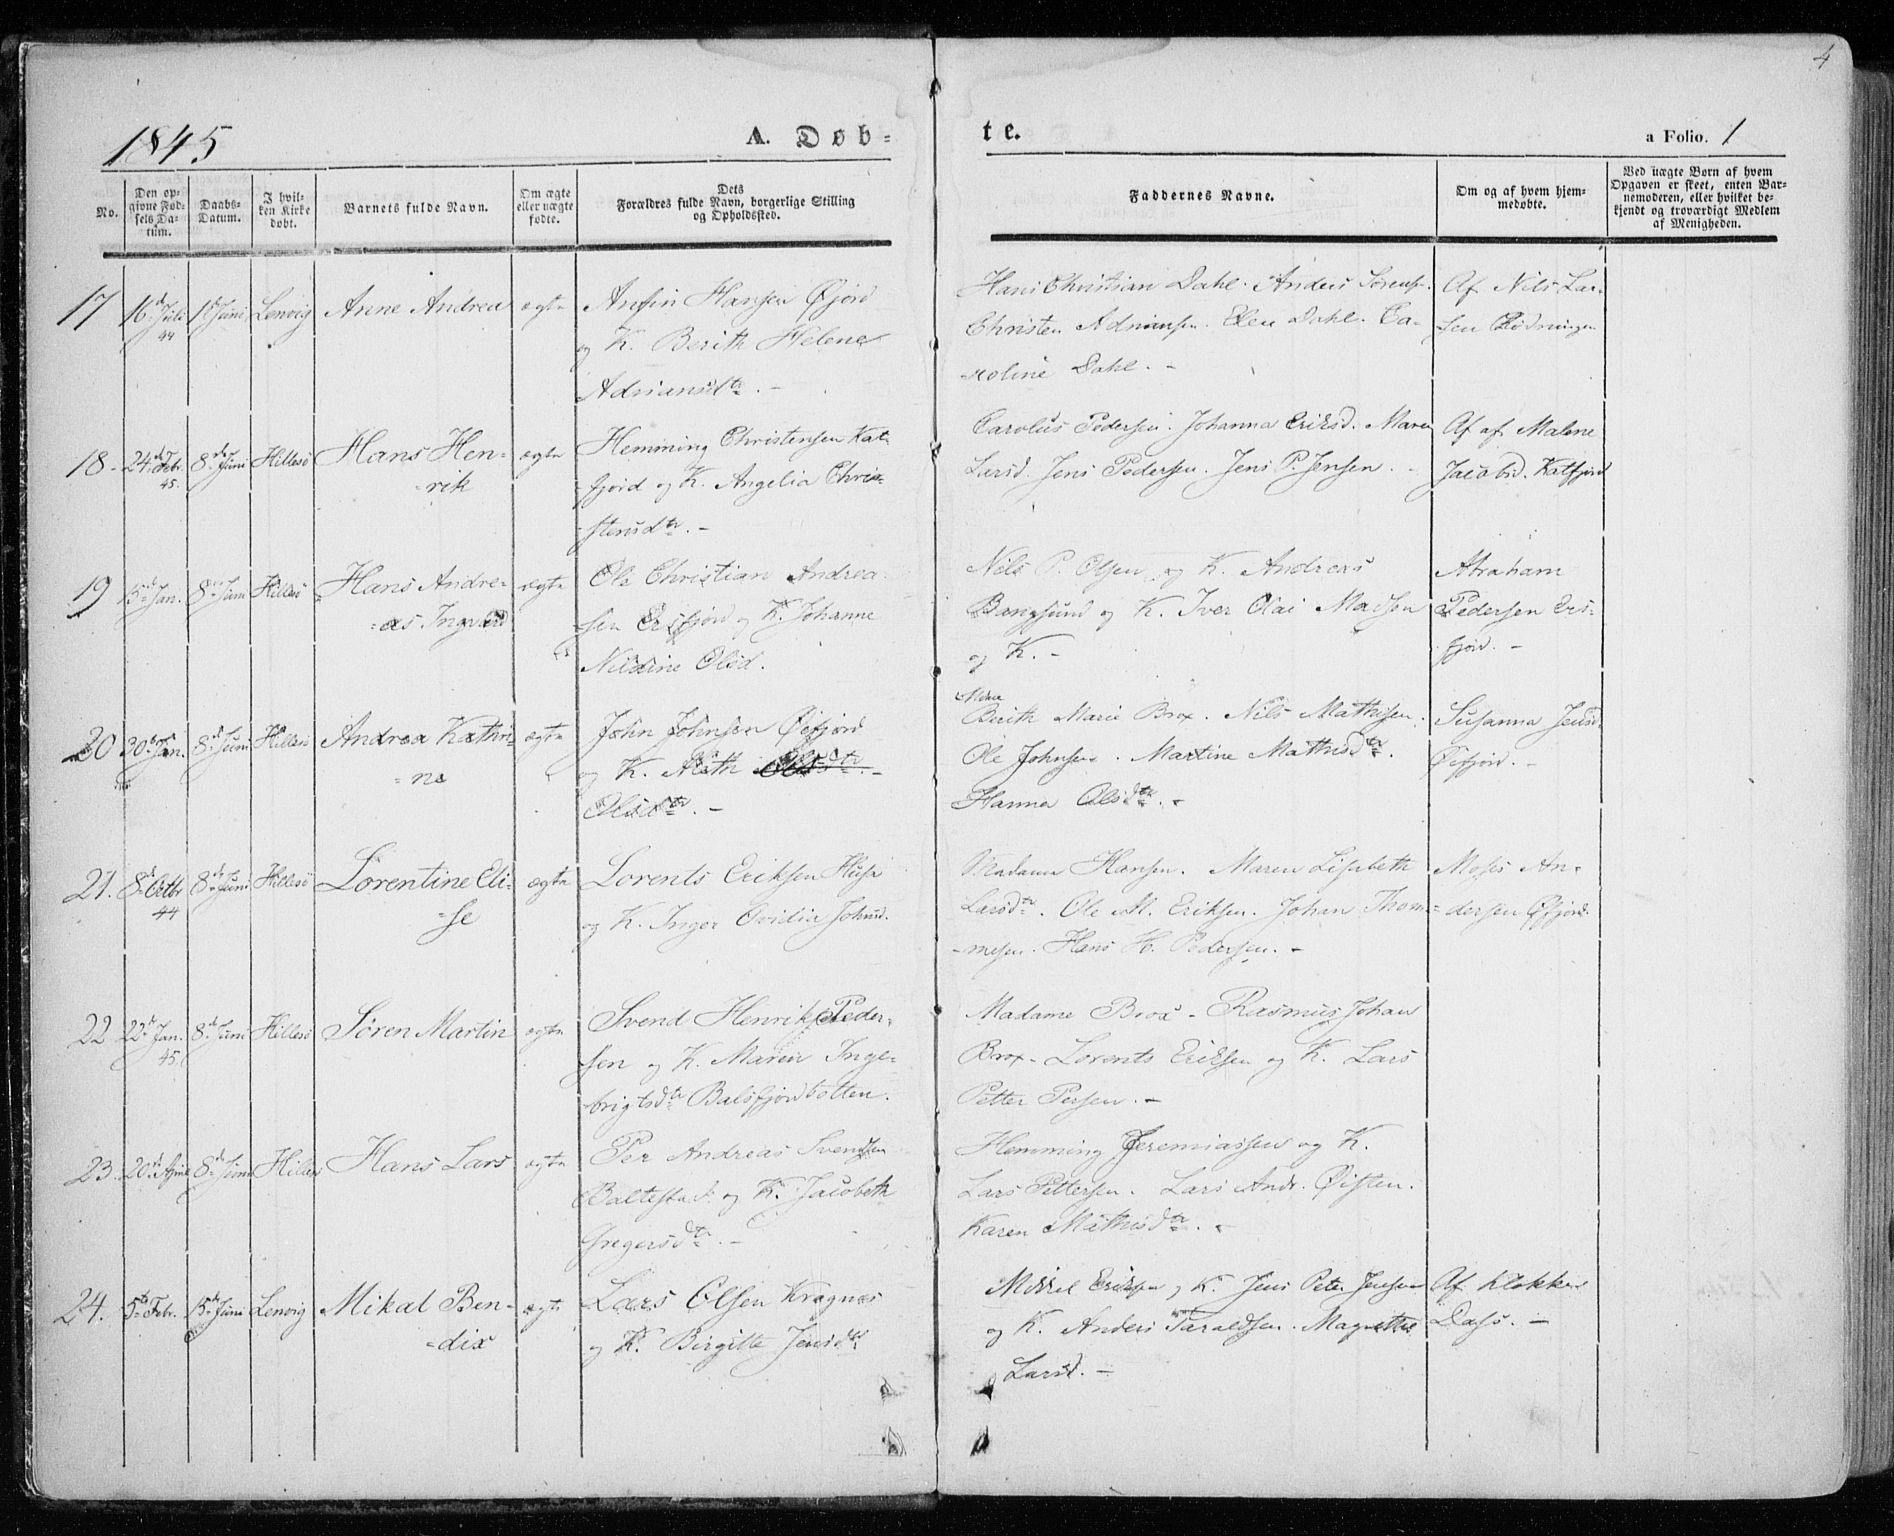 4
1845
A. Døb-
te.
a Folio. 1
No.
Den op-
givne Fød-
sels Da-
tum.
Daabs-
Datum.
I hvil-
ken Kirke
døbt.
Barnets fulde Navn.
Om ægte
eller uægte
fødte.
Dets
Forældres fulde Navn, borgerlige Stilling
og Opholdssted.
Faddernes Navne.
Om og af hvem hjem-
medøbte.
Ved uægte Børn af hvem
Opgaven er skeet, enten Bar-
nemoderen, eller hvilket be-
kjendt og troværdigt Medlem
af Menigheden.
17 16d Juli 44 1d Juni Lenvig Anne Andrea ægte
Anfin Hansen Øjord
og K. Berith Helene
Adriansdtr. -
Hans Christian Dahl. Anders Sørens.
Christen Adriansen. Elen Dahl. Ca-
roline Dahl. -
Af Nils Lar-
sen Rødningen
18- 24de Febr. 45. 8de Juni Hillesö Hans Hen-
=rik
ægte
Hemming Christensen Kat-
fjord og K. Angelia Chris-
stensdtr. -
Carolus Pedersen. Johanna Eriksd. Maren
Larsd. Jens Pedersen. Jens P. Jensen. -
Af af Malene
Jacobsd. Katfjord
19 15de Jan. 8de Juni Hillesö Hans Andre-
=as Ingvard
ægte
Ole Christian Andrea-
sen Ersfjord og K. Johanne
Nilsine Olsd.
Nils P. Olsen og K. Andreas
Bangsund og K. Iver Olai Madsen
og K. -
Abraham
Pedersen Ers-
fjord. -
20 30te Jan. 8de Juni Hillesö Andrea Kathri-
=ne
ægte
John Johnsen Øifjord
og K. Aleth Olsdtr. -
Olsdtr. -
Berith Marie Brox. Nils Mathisen.
Ole Johnsen. Martine Mathisdtr.
Hanna Olsdtr. -
Susanna Jensd.
Øifjord. -
21. 8de Octbr 44 8de Juni Hillesö Lorentine Eli-
=se
ægte
Lorents Eriksen Husø
og K. Inger Ovidia Johnsd.
Madame Hansen. Maren Lisabeth
Larsdtr. Ole M. Eriksen. Johan Thom-
=mesen. Hans H. Pedersen. -
Moses An-
=dersen Øfjord.
22 22de Jan. 45. 8de Juni Hillesö Søren Martin ægte
Svend Henrik Peder-
sen og K. Maren Inge-
brigtsdtr Balsfjordbotten.
Madame Brox - Rasmus Johan
Brox - Lorents Eriksen og K. Lars
Petter Persen. -
23. 20de April 8de Juni Hillesö Hans Lars ægte
Per Andreas Svendsen
Baltestad og K. Jacobeth
Gregersdtr. -
Hemming Jeremiassen og K.
Lars Pettersen. Lars Andr. Øisten.
Karen Mathisdtr. -
24. 5te Febr. 15de Juni Lenvig Mikal Ben-
=dix
ægte
Lars Olsen Kragnæs
og K. Birgitte Jensdtr
Mikkel Eriksen og K. Jens Peter Jensen
og K. Anders Taraldsen. Magrethe
Larsd. -
Af Klokker
Dass. -